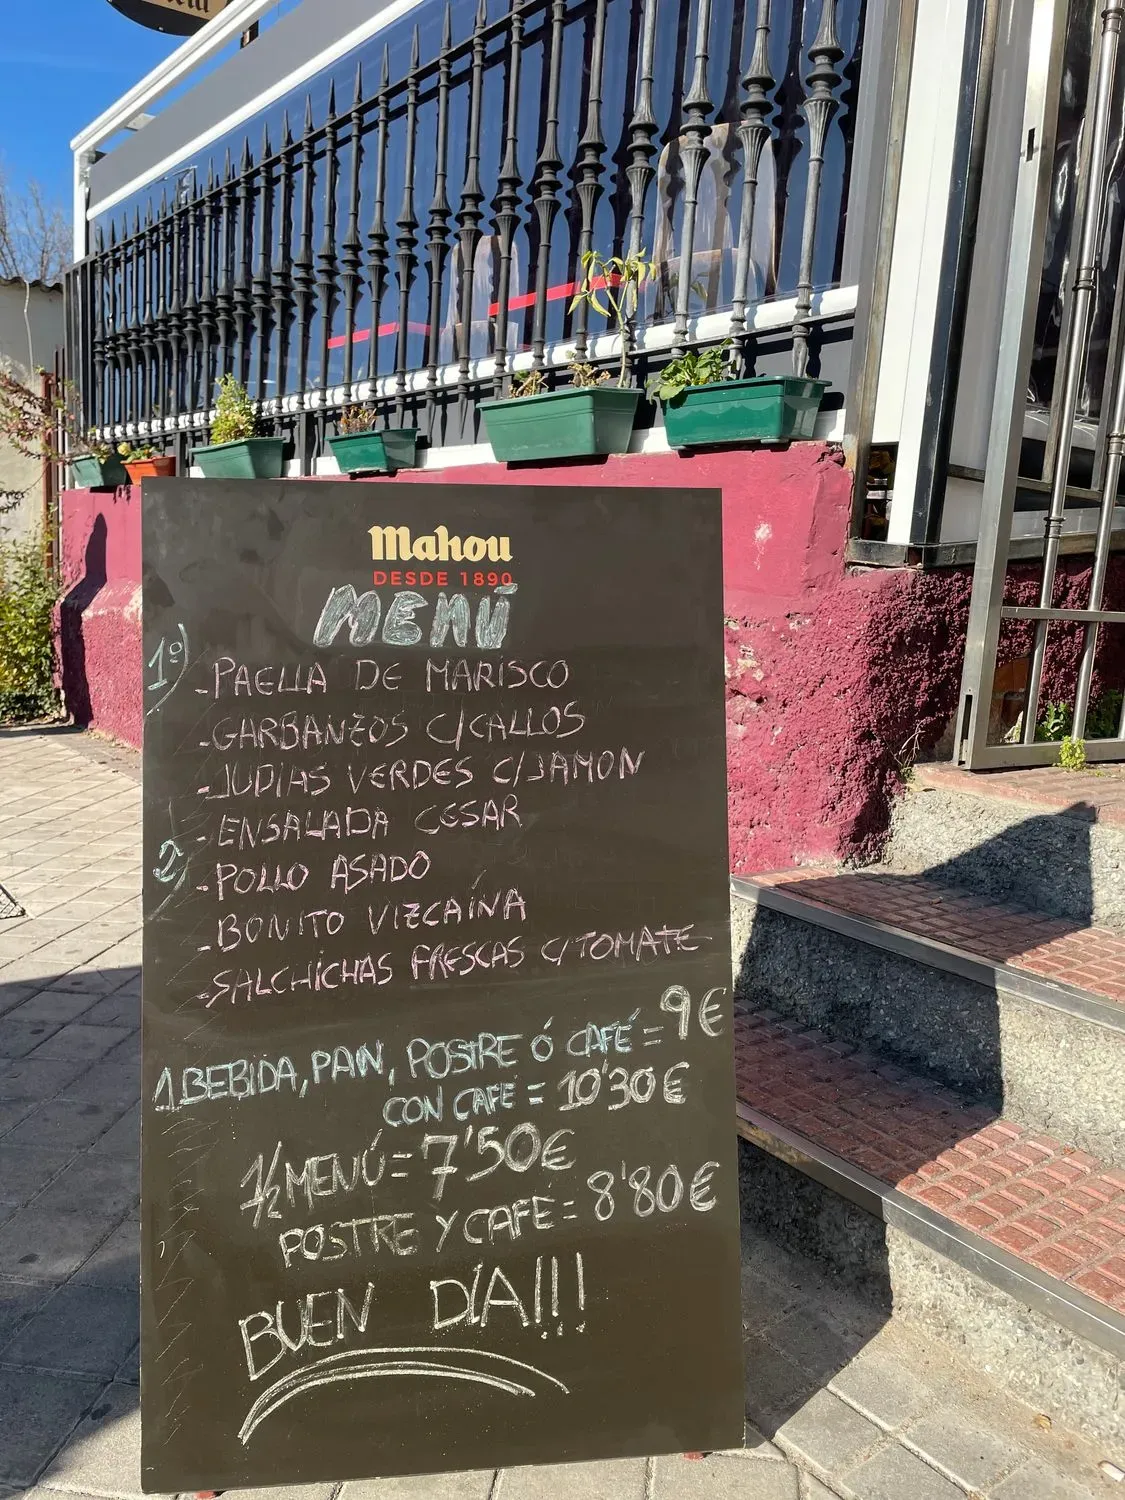 Mahou
DESDE 1890
MENÚ
1º) -PAELLA DE MARISCO
-GARBANZOS C/CALLOS
-JUDIAS VERDES C/JAMON
-ENSALADA CESAR
2) -POLLO ASADO
-BONITO VIZCAÍNA
-SALCHICHAS FRESCAS C/TOMATE
1 BEBIDA, PAN, POSTRE Ó CAFÉ = 9€
CON CAFE = 10'30€
1/2 MENÚ = 7'50€
POSTRE Y CAFÉ = 8'80€
BUEN DÍA!!!